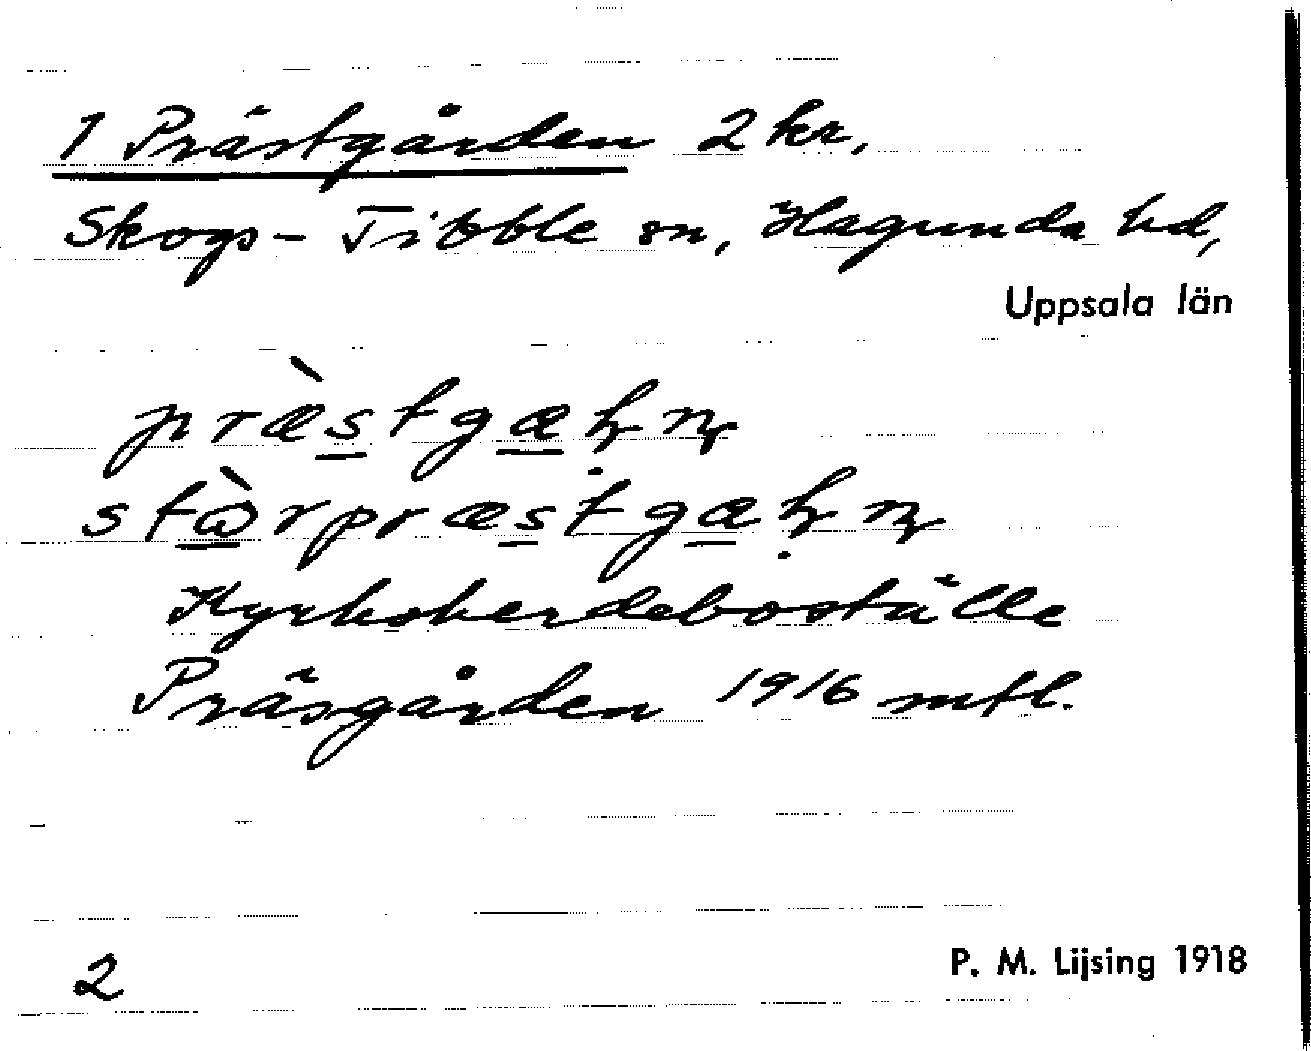 1 Prästgården 2 kr,
Skogs-Tibble sn, Hagunda hd,
Uppsala län
Kyrkoherdeboställe
Präsgården 1916 mtl.
2
P. M. Lijsing 1918